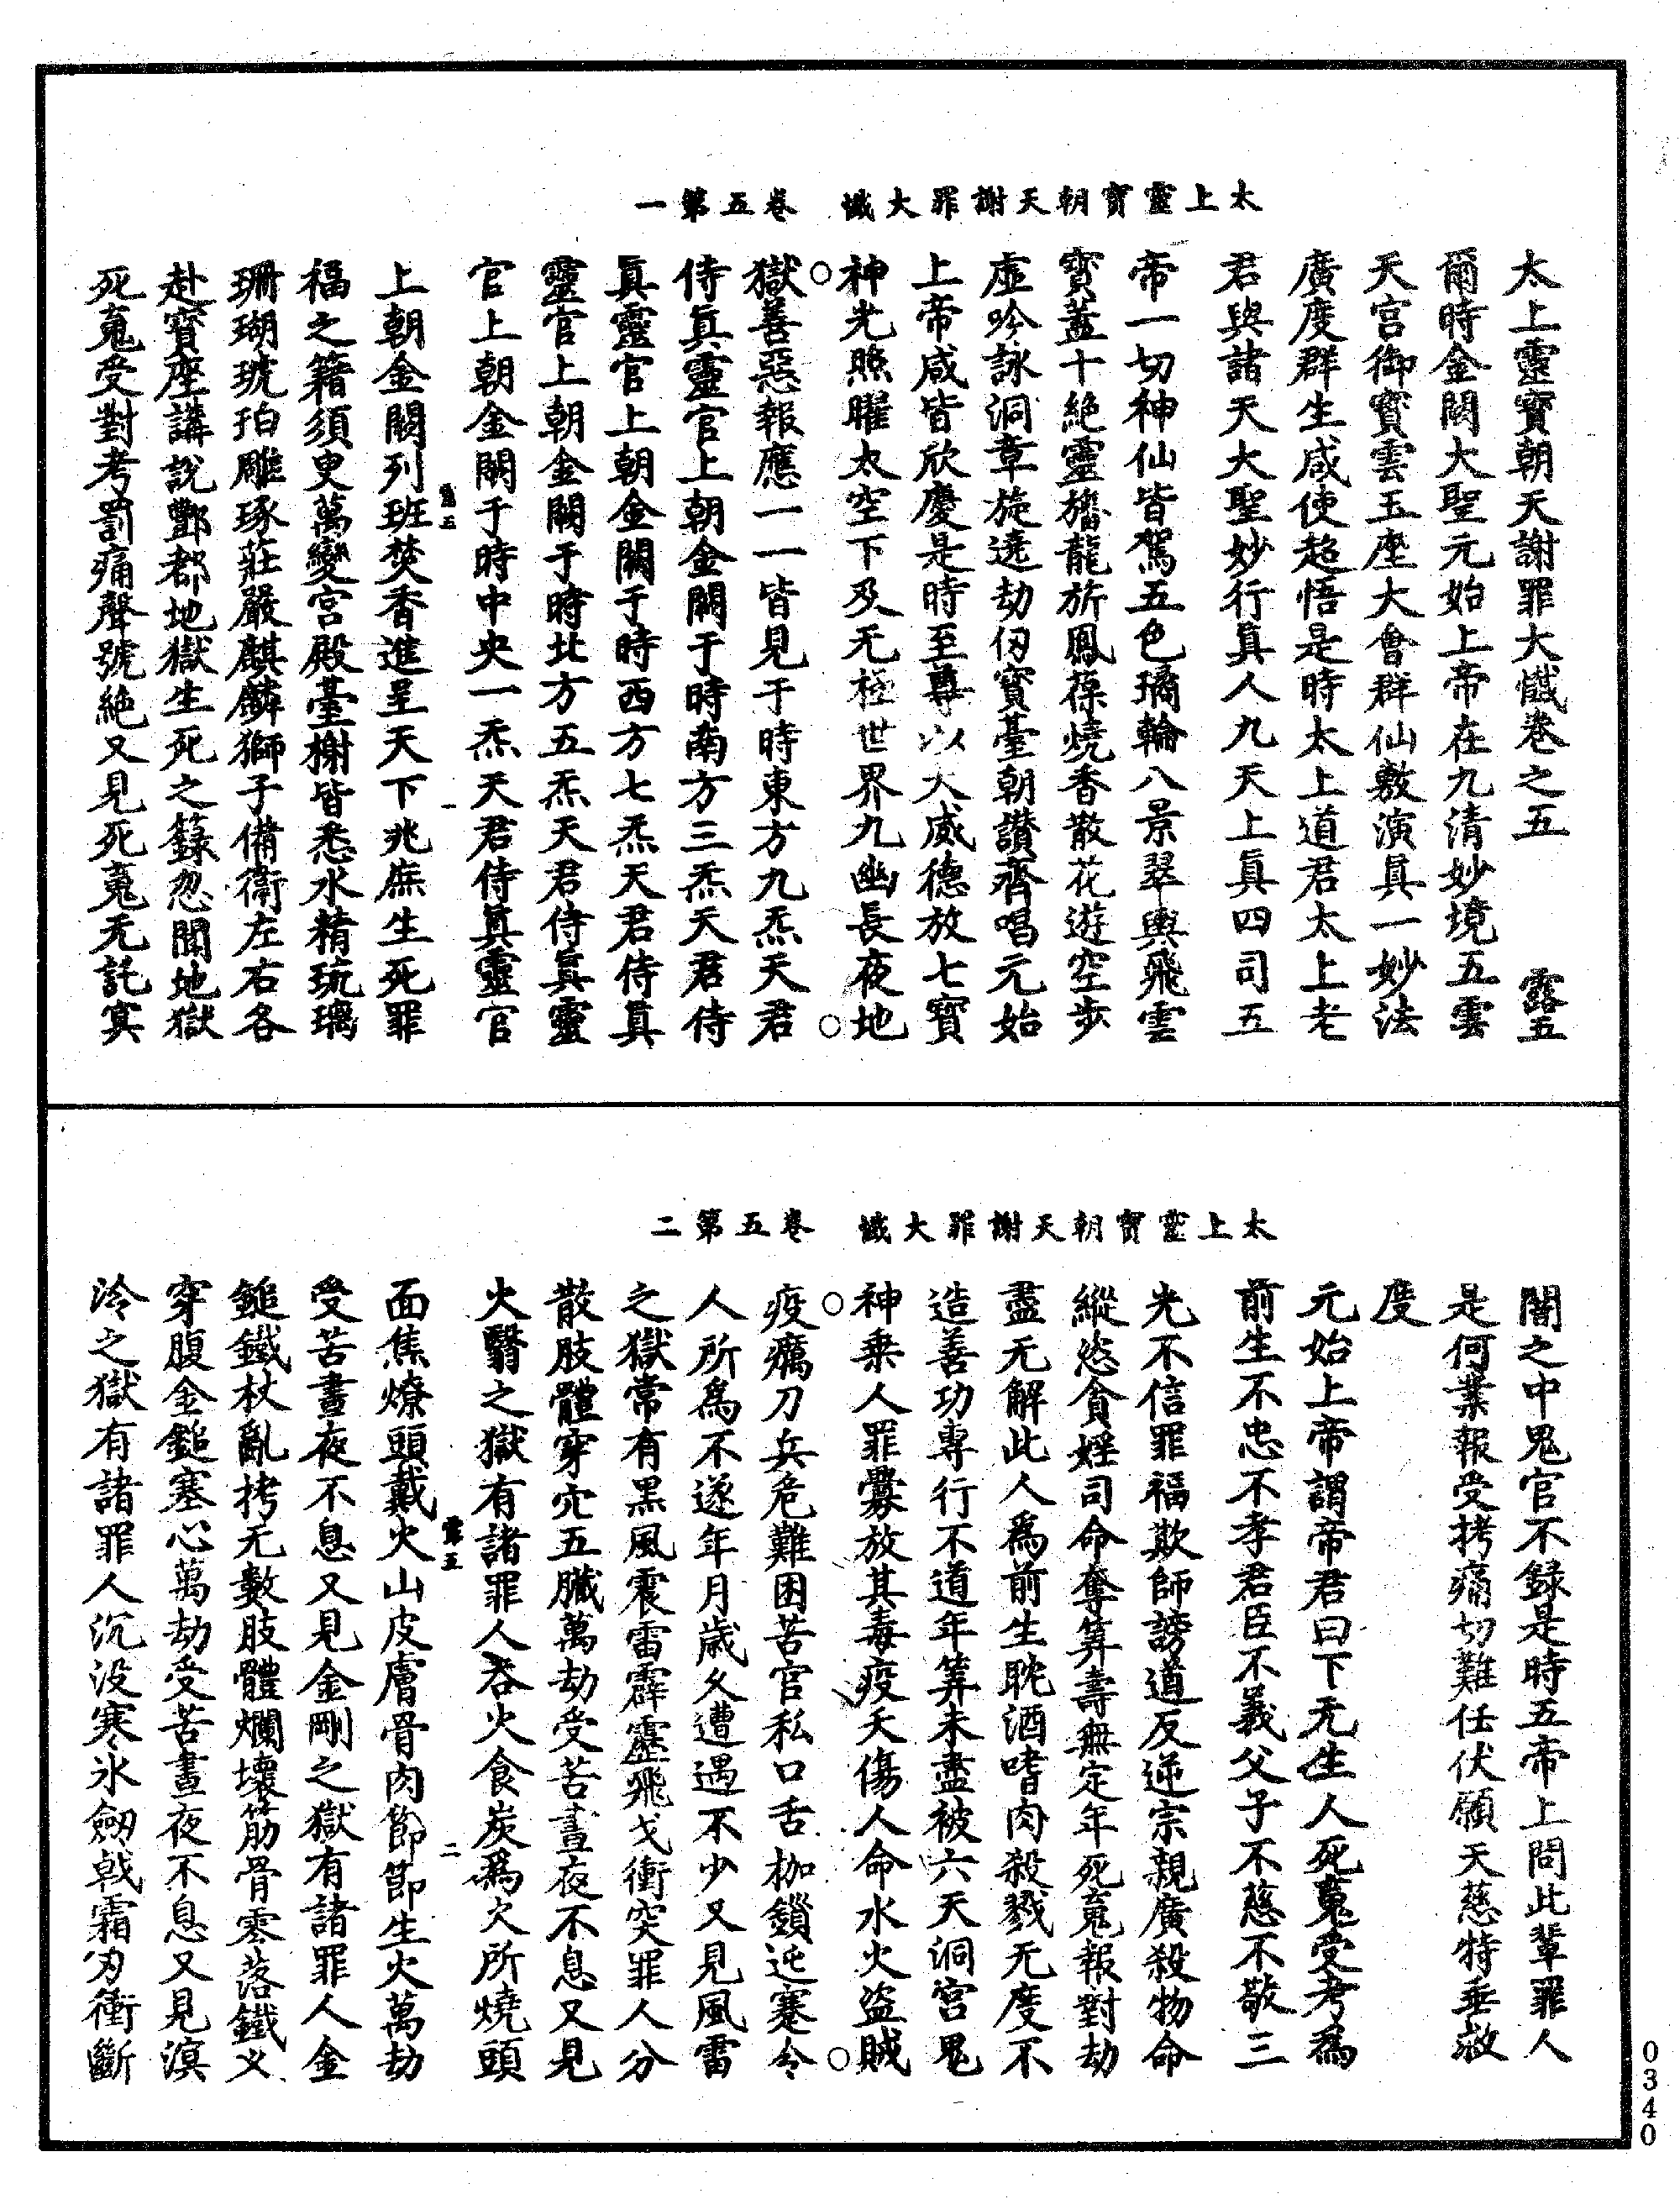 太上靈寶朝天謝罪大懺　卷五第一
太上靈寶朝天謝罪大懺卷之五　露五
爾時金闕大聖元始上帝在九清妙境五雲
天宮御寳雲玉座大會群仙敷演真一妙法
廣度群生咸使超悟是時太上道君太上老
君與諸天大聖妙行真人九天上真四司五
帝一切神仙皆駕五色璚輪八景翠輿飛雲
寳蓋十絶靈旛龍旂鳳葆燒香散花遊空步
虛吟詠洞章旋遶劫仞寳臺朝讃齊唱元始
上帝咸皆欣慶是時至尊以大威德放七寳
神光照曜太空下及无極世界九幽長夜地
獄善惡報應一一皆見于時東方九炁天君
侍真靈官上朝金闕于時南方三炁天君侍
真靈官上朝金闕于時西方七炁天君侍真
靈官上朝金闕于時北方五炁天君侍真靈
官上朝金闕于時中央一炁天君侍真靈官
露五　一
上朝金闕列班焚香進呈天下兆庶生死罪
福之籍須臾萬變宮殿臺榭皆悉水精琉璃
珊瑚琥珀雕琢莊嚴麒麟獅子備衞左右各
赴寳座講說酆都地獄生死之籙忽聞地獄
死䰟受對考罰痛聲號絶又見死䰟无託冥
太上靈寶朝天謝罪大懺　卷五第二
闇之中鬼官不録是時五帝上問此輩罪人
是何業報受拷痛切難任伏願天慈特垂救
度
元始上帝謂帝君曰下元生人死䰟受考爲
前生不忠不孝君臣不義父子不慈不敬三
光不信罪福欺師謗道反逆宗親廣殺物命
縱恣貪婬司命奪筭壽無定年死䰟報對劫
盡无解此人爲前生耽酒嗜肉殺戮无度不
造善功專行不道年筭未盡被六天洞宮鬼
神乗人罪釁放其毒疫夭傷人命水火盜賊
疫癘刀兵危難困苦官私口舌枷鎖迍蹇令
人所爲不遂年月歲久遭遇不少又見風雷
之獄常有黒風震雷霹靂飛戈衝突罪人分
散肢體穿穴五臟萬劫受苦晝夜不息又見
火翳之獄有諸罪人吞火食炭爲火所燒頭
露五　二
面焦燎頭戴火山皮膚骨肉節節生火萬劫
受苦晝夜不息又見金剛之獄有諸罪人金
鎚鐵杖亂拷无數肢體爛壞筋骨零落鐵义
穿腹金鎚塞心萬劫受苦晝夜不息又見溟
泠之獄有諸罪人沉没寒氷劒戟霜刃衝斷
0340